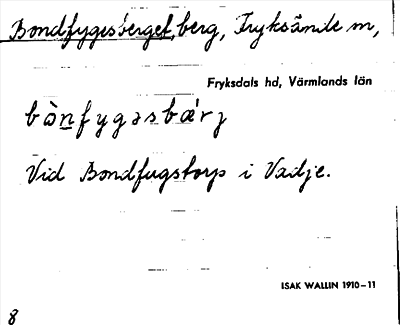 Bondfygesberget, berg, Fryksände sn,
Fryksdals hd, Värmlands län
bònfygəsbǽrj
Vid Bondfugstorp i Vadje.
ISAK WALLIN 1910–11
8